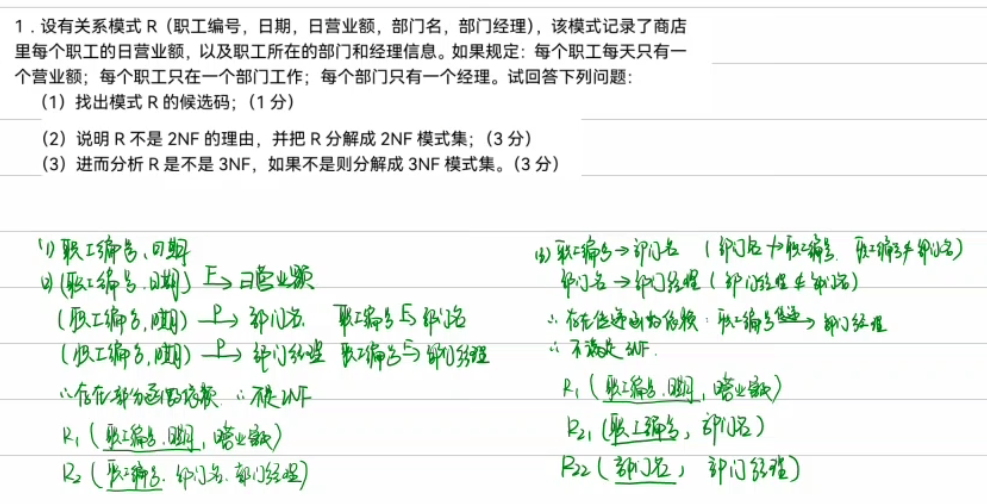 1．设有关系模式 R（职工编号，日期，日营业额，部门名，部门经理），该模式记录了商店
里每个职工的日营业额，以及职工所在的部门和经理信息。如果规定：每个职工每天只有一
个营业额；每个职工只在一个部门工作；每个部门只有一个经理。试回答下列问题：
（1）找出模式 R 的候选码；（1 分）
（2）说明 R 不是 2NF 的理由，并把 R 分解成 2NF 模式集；（3 分）
（3）进而分析 R 是不是 3NF，如果不是则分解成 3NF 模式集。（3 分）
(1) 职工编号、日期
(2) (职工编号、日期) F→ 日营业额
(职工编号,日期) P→ 部门名. 职工编号 F→ 部门名
(职工编号,日期) P→ 部门经理 职工编号 F→ 部门经理
∴存在部分函数依赖 ∴不是2NF
R₁ ( 职工编号.日期, 日营业额)
R₂ ( 职工编号. 部门名. 部门经理)
(3) 职工编号→部门名 ( 部门名↛职工编号. 职工编号⊄部门名)
部门名→部门经理 ( 部门经理⊄部门名)
∴ 存在传递函数依赖: 职工编号 传递→ 部门经理
∴ 不满足3NF.
R₁ ( 职工编号.日期, 日营业额)
R₂₁ (职工编号, 部门名)
R₂₂ ( 部门名, 部门经理)